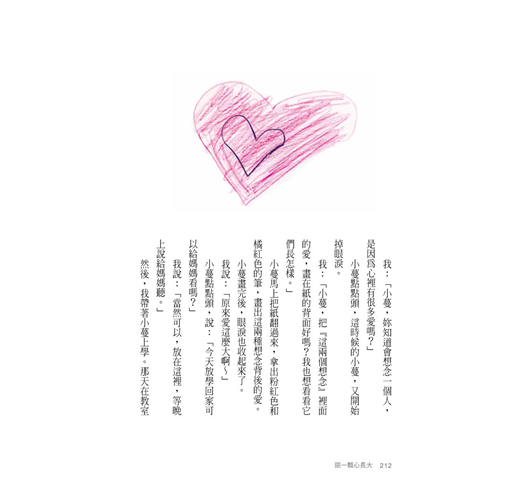 我：「小蔓，妳知道會想念一個人，
是因為心裡有很多愛嗎？」
小蔓點點頭，這時候的小蔓，又開始
掉眼淚。
我：「小蔓，把『這兩個想念』裡面
的愛，畫在紙的背面好嗎？我也想看看它
們長怎樣。」
小蔓馬上把紙翻過來，拿出粉紅色和
橘紅色的筆，畫出這兩種想念背後的愛。
小蔓畫完後，眼淚也收起來了。
我說：「原來愛這麼大啊～」
小蔓點點頭，說：「今天放學回家可
以給媽媽看嗎？」
我說：「當然可以，放在這裡，等晚
上說給媽媽聽。」
然後，我帶著小蔓上學。那天在教室
陪一顆心長大 212